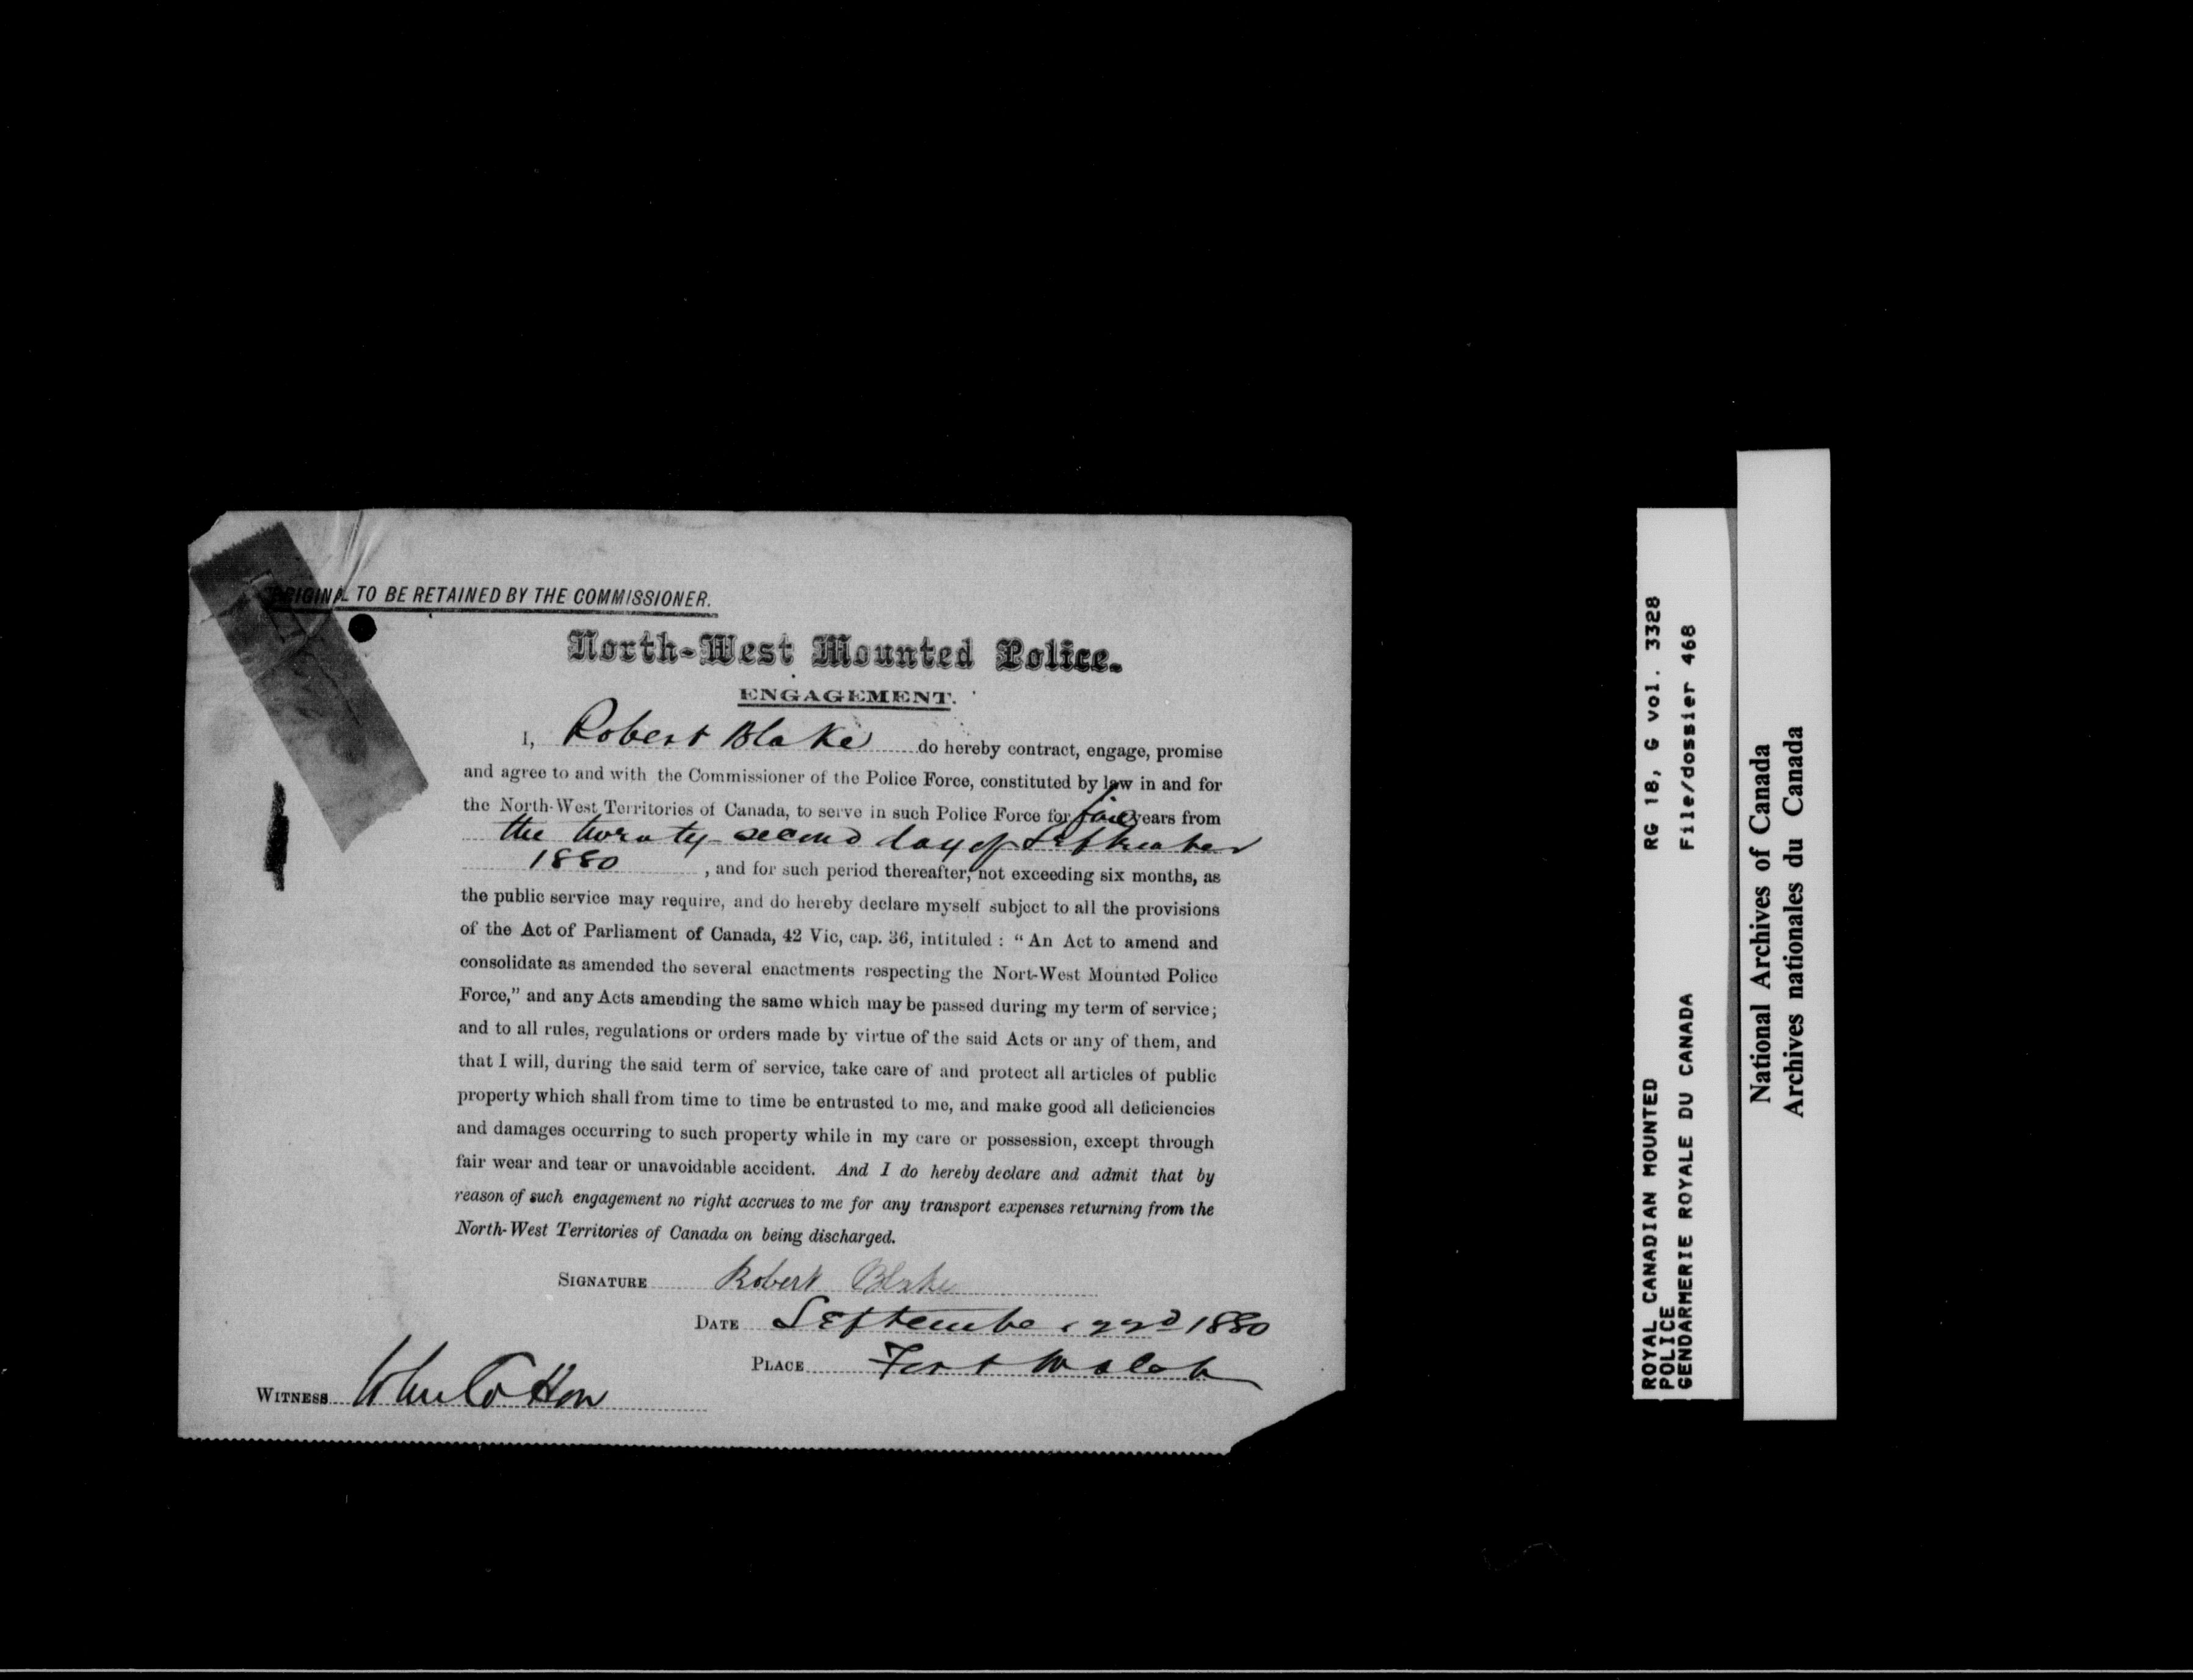 ORIGINAL TO BE RETAINED BY THE COMMISSIONER.
North-West Mounted Police.
ENGAGEMENT.
I, Robert Blake do hereby contract, engage, promise
and agree to and with the Commissioner of the Police Force, constituted by law in and for
the North-West Territories of Canada, to serve in such Police Force for five years from
the twenty-second day of September
1880, and for such period thereafter, not exceeding six months, as
the public service may require, and do hereby declare myself subject to all the provisions
of the Act of Parliament of Canada, 42 Vic, cap. 36, intituled : “ An Act to amend and
consolidate as amended the several enactments respecting the Nort-West Mounted Police
Force,” and any Acts amending the same which may be passed during my term of service;
and to all rules, regulations or orders made by virtue of the said Acts or any of them, and
that I will, during the said term of service, take care of and protect all articles of public
property which shall from time to time be entrusted to me, and make good all deficiencies
and damages occurring to such property while in my care or possession, except through
fair wear and tear or unavoidable accident. And I do hereby declare and admit that by
reason of such engagement no right accrues to me for any transport expenses returning from the
North-West Territories of Canada on being discharged.
SIGNATURE Robert Blake
DATE September 22nd 1880
PLACE Fort Walsh
WITNESS John Cotton
ROYAL CANADIAN MOUNTED RG 18, G vol. 3328
POLICE
GENDARMERIE ROYALE DU CANADA File/dossier 468
National Archives of Canada
Archives nationales du Canada